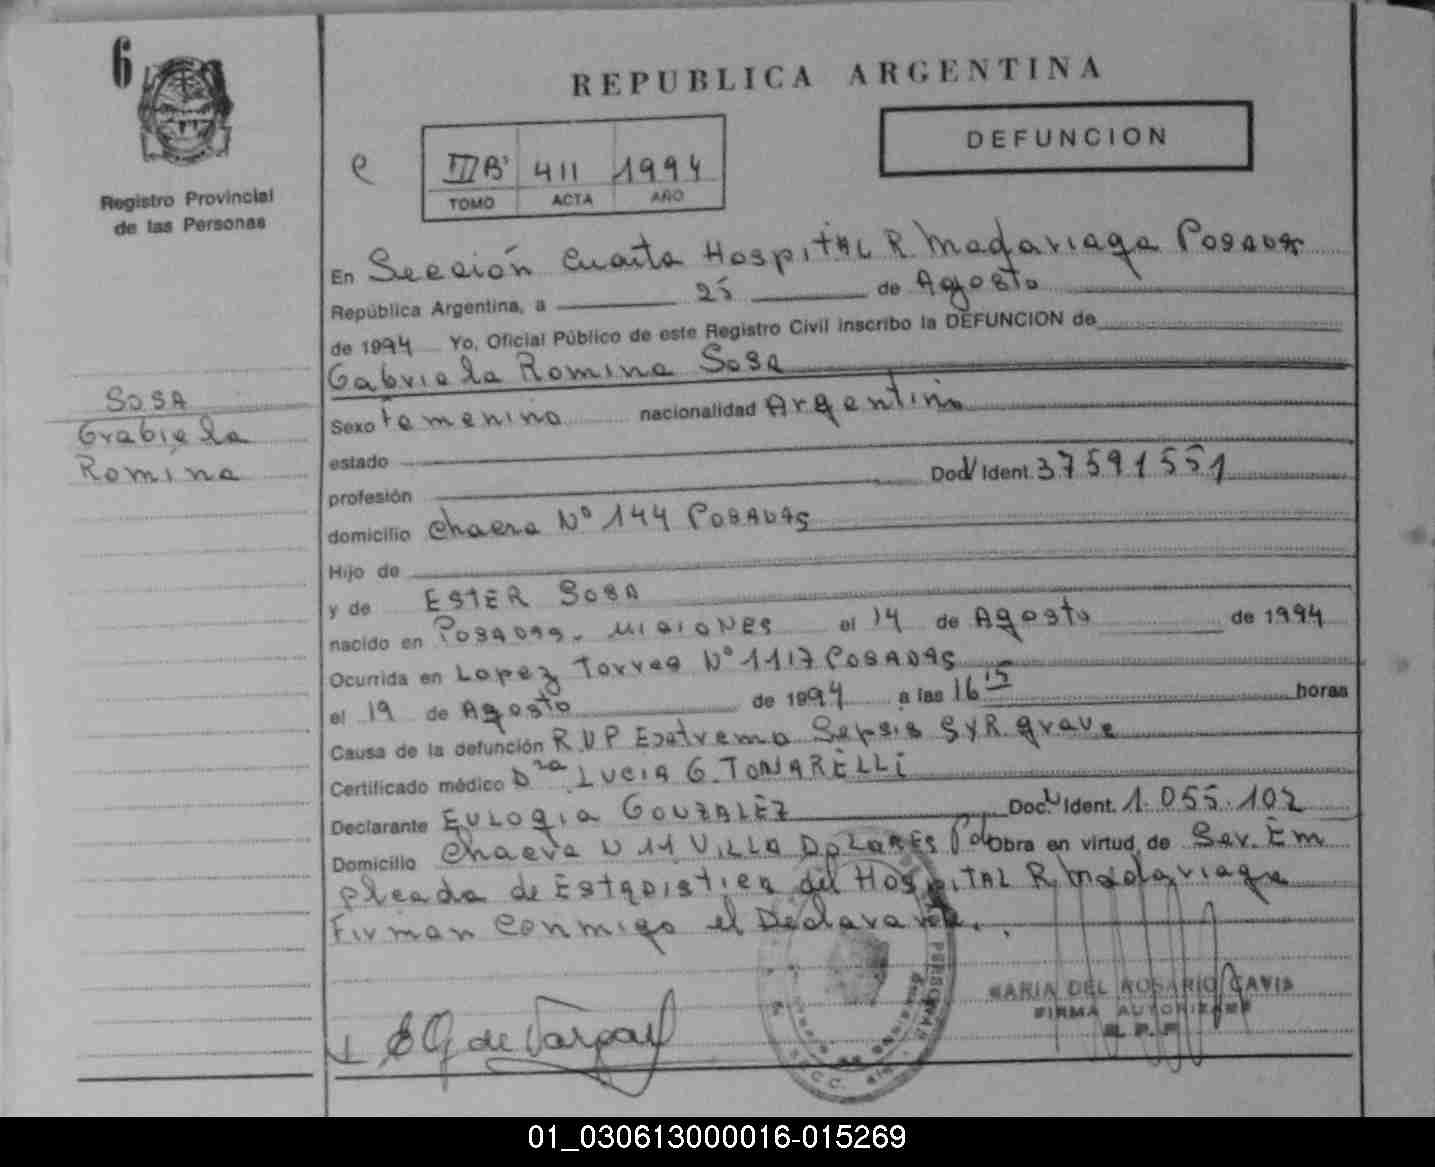 6
Registro Provincial
de las Personas
SOSA
Grabiela
Romina
REPUBLICA ARGENTINA
DEFUNCION
e
IIIBº 411 1994
TOMO ACTA AÑO
En Sección Cuarta Hospital R. Madariaga Posadas
República Argentina, a 25 de Agosto
de 1994 Yo, Oficial Público de este Registro Civil inscribo la DEFUNCION de
Gabriela Romina Sosa
Sexo Femenino nacionalidad Argentina
estado
profesión Doc. Ident. 37591551
domicilio Chacra Nº 144 Posadas
Hijo de
y de ESTER SOSA
nacido en Posadas - MISIONES el 14 de Agosto de 1994
Ocurrida en Lopez Torres Nº 1117 Posadas
el 19 de Agosto de 1994 a las 16 15 horas
Causa de la defunción R.N.P Extremo Sepsis SYR. grave
Certificado médico Dra. LUCIA G. TONARELLI
Declarante EULOGIA GONZALEZ Doc. Ident. 1.055.102
Domicilio Chacra N 11 VILLA DOLARES Pdas Obra en virtud de Ser. Em
pleada de Estadistica del HOSPITAL R. Madariaga
Firman conmigo el Declarante.
E G de Vargas
PERSONAS
MARIA DEL ROSARIO GAVIS
FIRMA AUTORIZADA
R. P. P
01_030613000016-015269